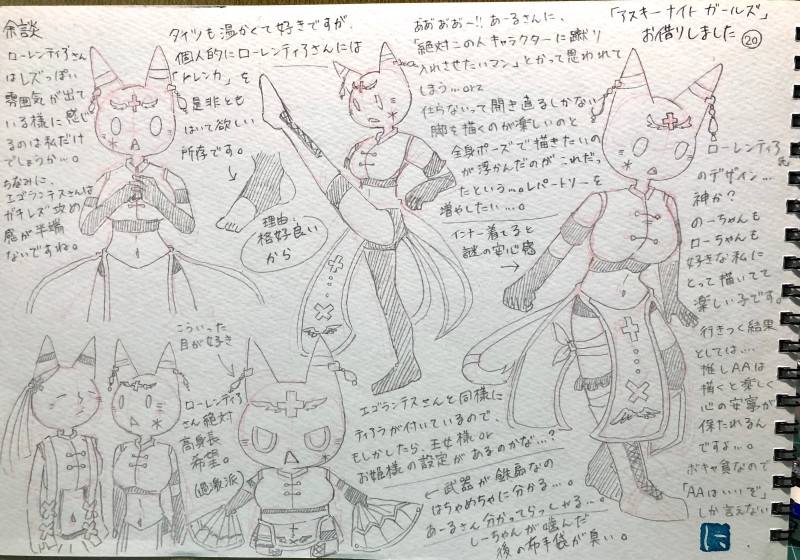 余談
ローレンティろさん
はレズっぽい
雰囲気が出て
いる様に感じ
るのは私だけ
でしょうか…。
ちなみに、
エゴランテスさんは
ガチレズ攻め
感が半端
ないですね。
タイツも温かくて好きですが、
個人的にローレンティろさんには
「トレンカ」を
是非とも
はいて欲しい
所存です。
理由:
格好良い
から
ああぉぉー!!、あーるさんに、
「絶対この人キャラクターに蹴り
入れさせたいマン」とかって思われて
しまう…orz
仕らないって開き直るしかない
脚を描くのが楽しいのと
全身ポーズで描きたいの
が浮かんだのがこれだっ
たという…。レパートリーを
増やしたい…。
インナー着てると
謎の安心感
「アスキーナイトガールズ」
お借りしました
⑳
ローレンティろ氏
のデザイン…
神か?
のーちゃんも
ローちゃんも
好きな私に
とって描いてて
楽しい子です。
行きつく結果
としては…
推しAAは
描くと楽しく
心の安寧が
保たれるん
ですよ…。
ボキャ貧なので
「AAはいいぞ」
しか言えない
こういった
目が好き
ローレンティろ
さん絶対
高身長
希望。
(過激派)
エゴランテスさんと同様に
ティアラが付いているので、
もしかしたら、王女様or
お姫様の設定があるのかな…?
←武器が鉄扇なの
はちゃめちゃに分かる…。
あーるさん分かってらっしゃる…。
しーちゃんが噛んだ
後の布手袋が臭い。